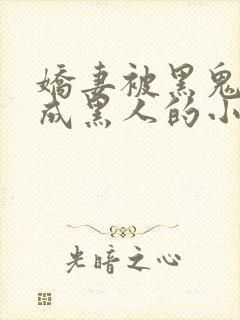 嬌妻被黑鬼
成黑人的小
光暗之心